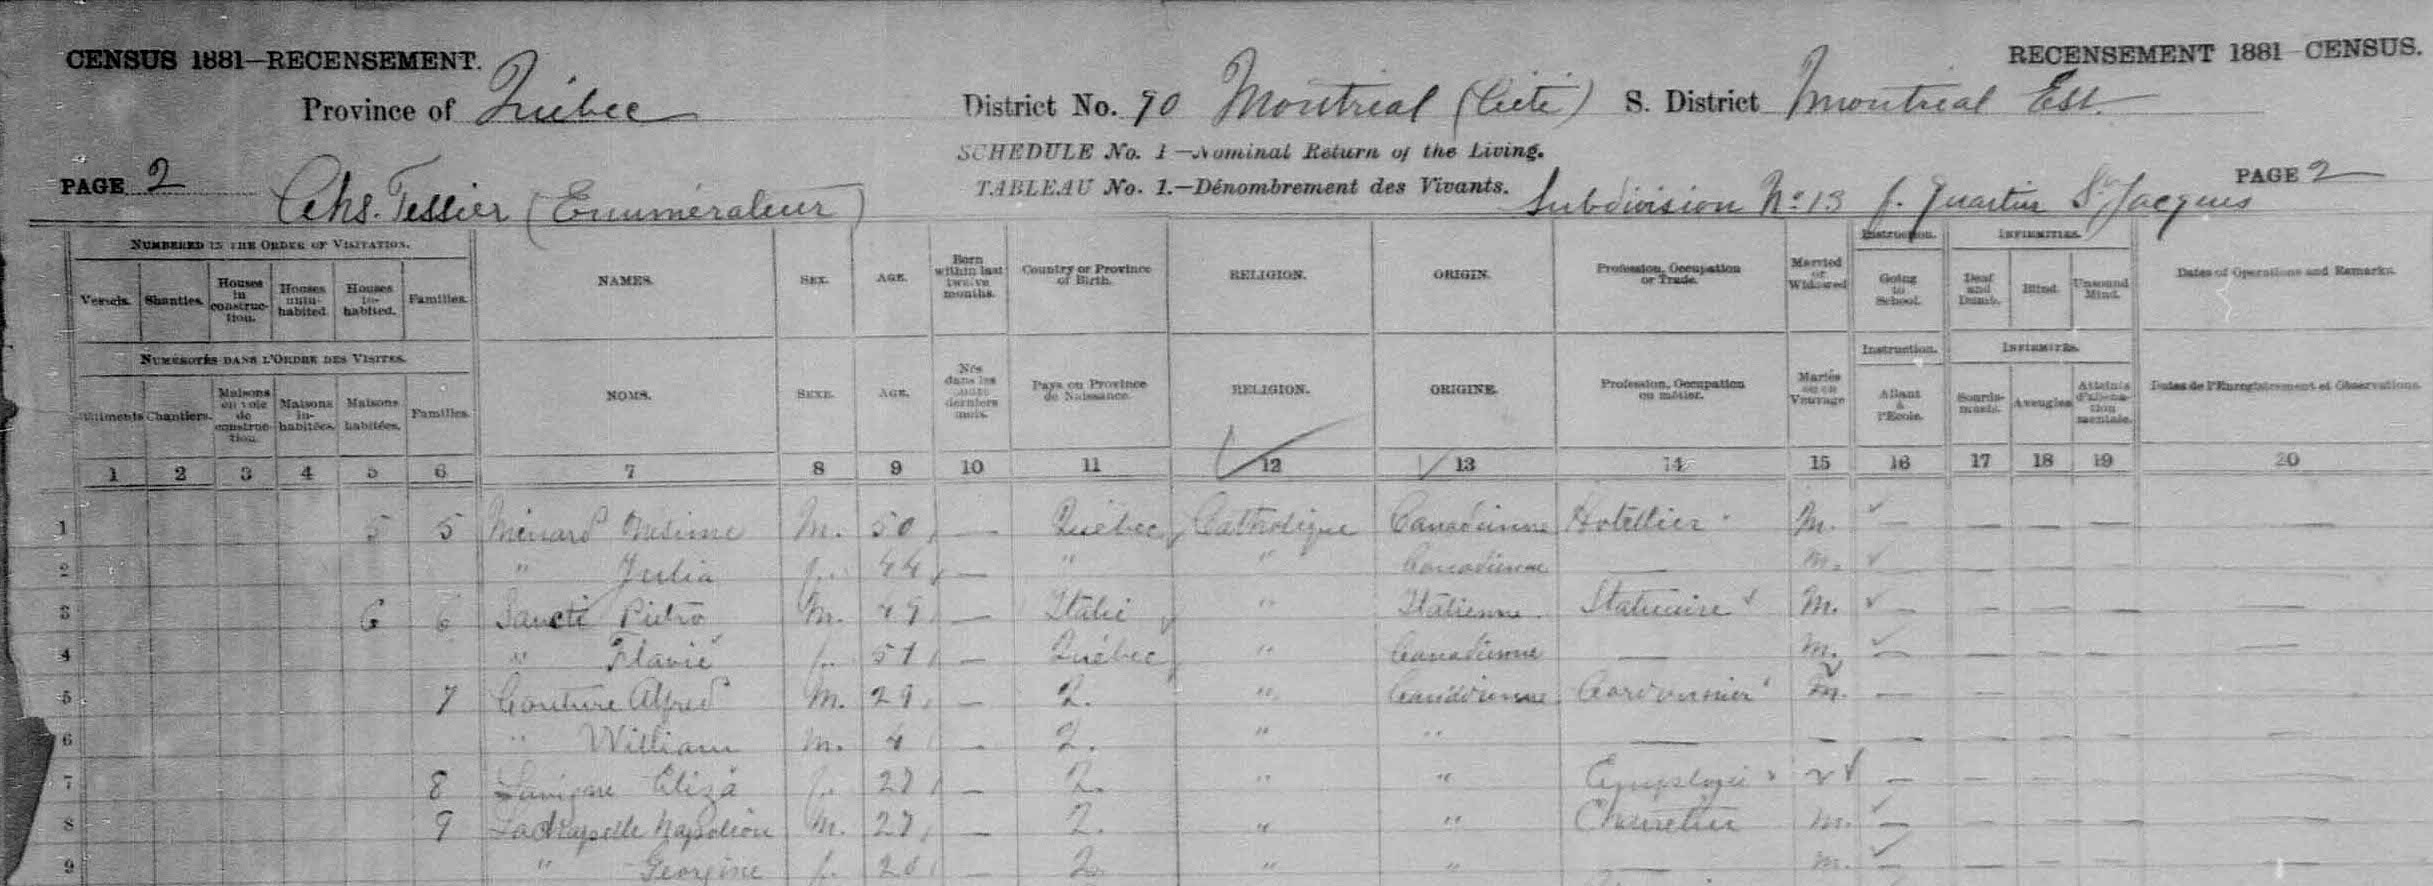 CENSUS 1881—RECENSEMENT. RECENSEMENT 1881—CENSUS.
Province of Québec District No. 90 Montréal (Cité) S. District Montréal Est.
SCHEDULE No. 1—Nominal Return of the Living.
PAGE 2 TABLEAU No. 1.—Dénombrement des Vivants. PAGE 2
Chs. Tessier (Enumérateur) Subdivision No. 13 f. Quartier St. Jacques
NUMBERED IN THE ORDER OF VISITATION. NAMES. SEX. AGE. Born within last twelve months. Country or Province of Birth. RELIGION. ORIGIN. Profession, Occupation or Trade. Married or Widowed Instruction. INFIRMITIES. Dates of Operations and Remarks.
Vessels. Shanties. Houses in construction. Houses uninhabited. Houses inhabited. Families. Going to School. Deaf and Dumb. Blind. Unsound Mind.
NUMÉROTÉS DANS L'ORDRE DES VISITES. NOMS. SEXE. AGE. Nés dans les douze derniers mois. Pays ou Province de Naissance. RELIGION. ORIGINE. Profession, Occupation ou métier. Mariés ou en Veuvage Instruction. INFIRMITÉS. Dates de l'Enregistrement et Observations.
Bâtiments Chantiers. Maisons en voie de construction. Maisons inhabitées. Maisons habitées. Familles. Allant à l'École. Sourds-muets. Aveugles Atteints d'aliénation mentale.
1 2 3 4 5 6 7 8 9 10 11 12 13 14 15 16 17 18 19 20
1 5 5 Ménard Onésime M. 50 — Québec Catholique Canadienne Hotellier M. — — — — —
2 " Julia f. 44 — " " Canadienne — M. — — — —
3 6 6 Sancti Pietro M. 49 — Italie " Italienne Statuaire M. — — — — —
4 " Flavie f. 51 — Québec " Canadienne — M. — — — — —
5 7 Couture Alfred M. 29 — Q. " Canadienne Cordonnier M. — — — — —
6 " William M. 4 — Q. " " — — — — — — —
7 8 Lavigne Eliza f. 27 — Q. " " v — — — — —
8 9 Lachapelle Napoléon M. 27 — Q. " " Charretier M. — — — — —
9 " Georgine f. 26 — Q. " " — M. — — — — —